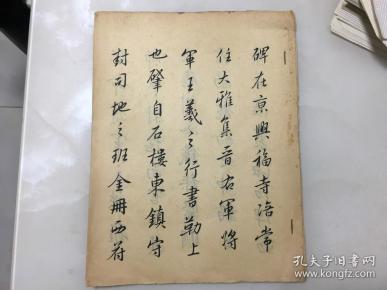 碑在京興福寺陪常
住大雅集晋右軍將
軍王羲之行書勒上
也肇自石樓東鎮守
封司地之班金冊西符
孔夫子旧书网